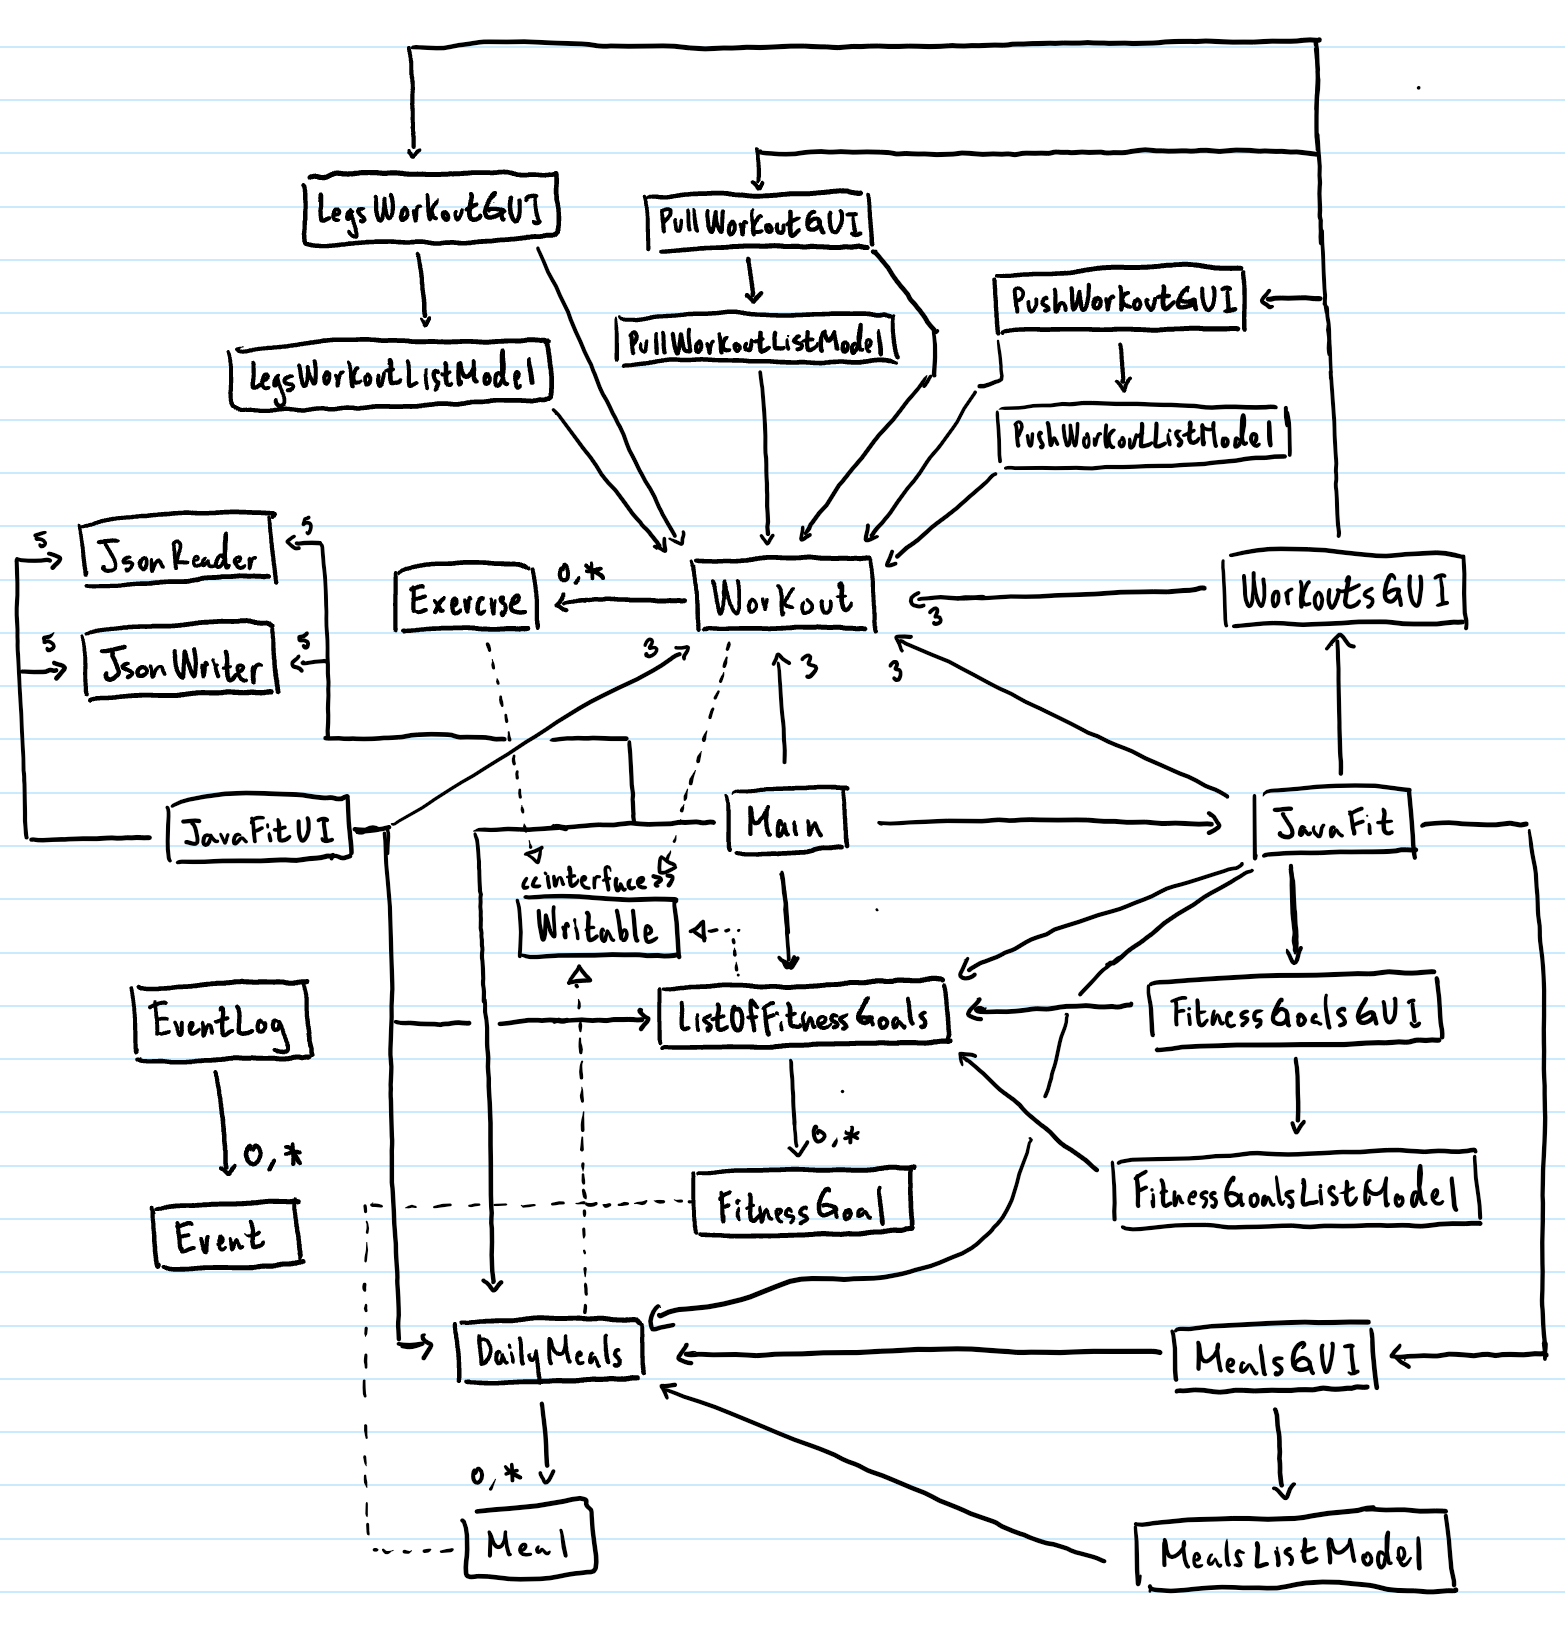 LegsWorkoutGUI
PullWorkoutGUI
PushWorkoutGUI
PullWorkoutListModel
LegsWorkoutListModel
PushWorkoutListModel
5
5
JsonReader
0,*
Exercise
Workout
3
WorkoutsGUI
5
5
JsonWriter
3
3
3
JavaFitUI
Main
JavaFit
<<interface>>
Writable
EventLog
ListOfFitnessGoals
FitnessGoalsGUI
0,*
0,*
FitnessGoal
FitnessGoalsListModel
Event
DailyMeals
MealsGUI
0,*
Meal
MealsListModel